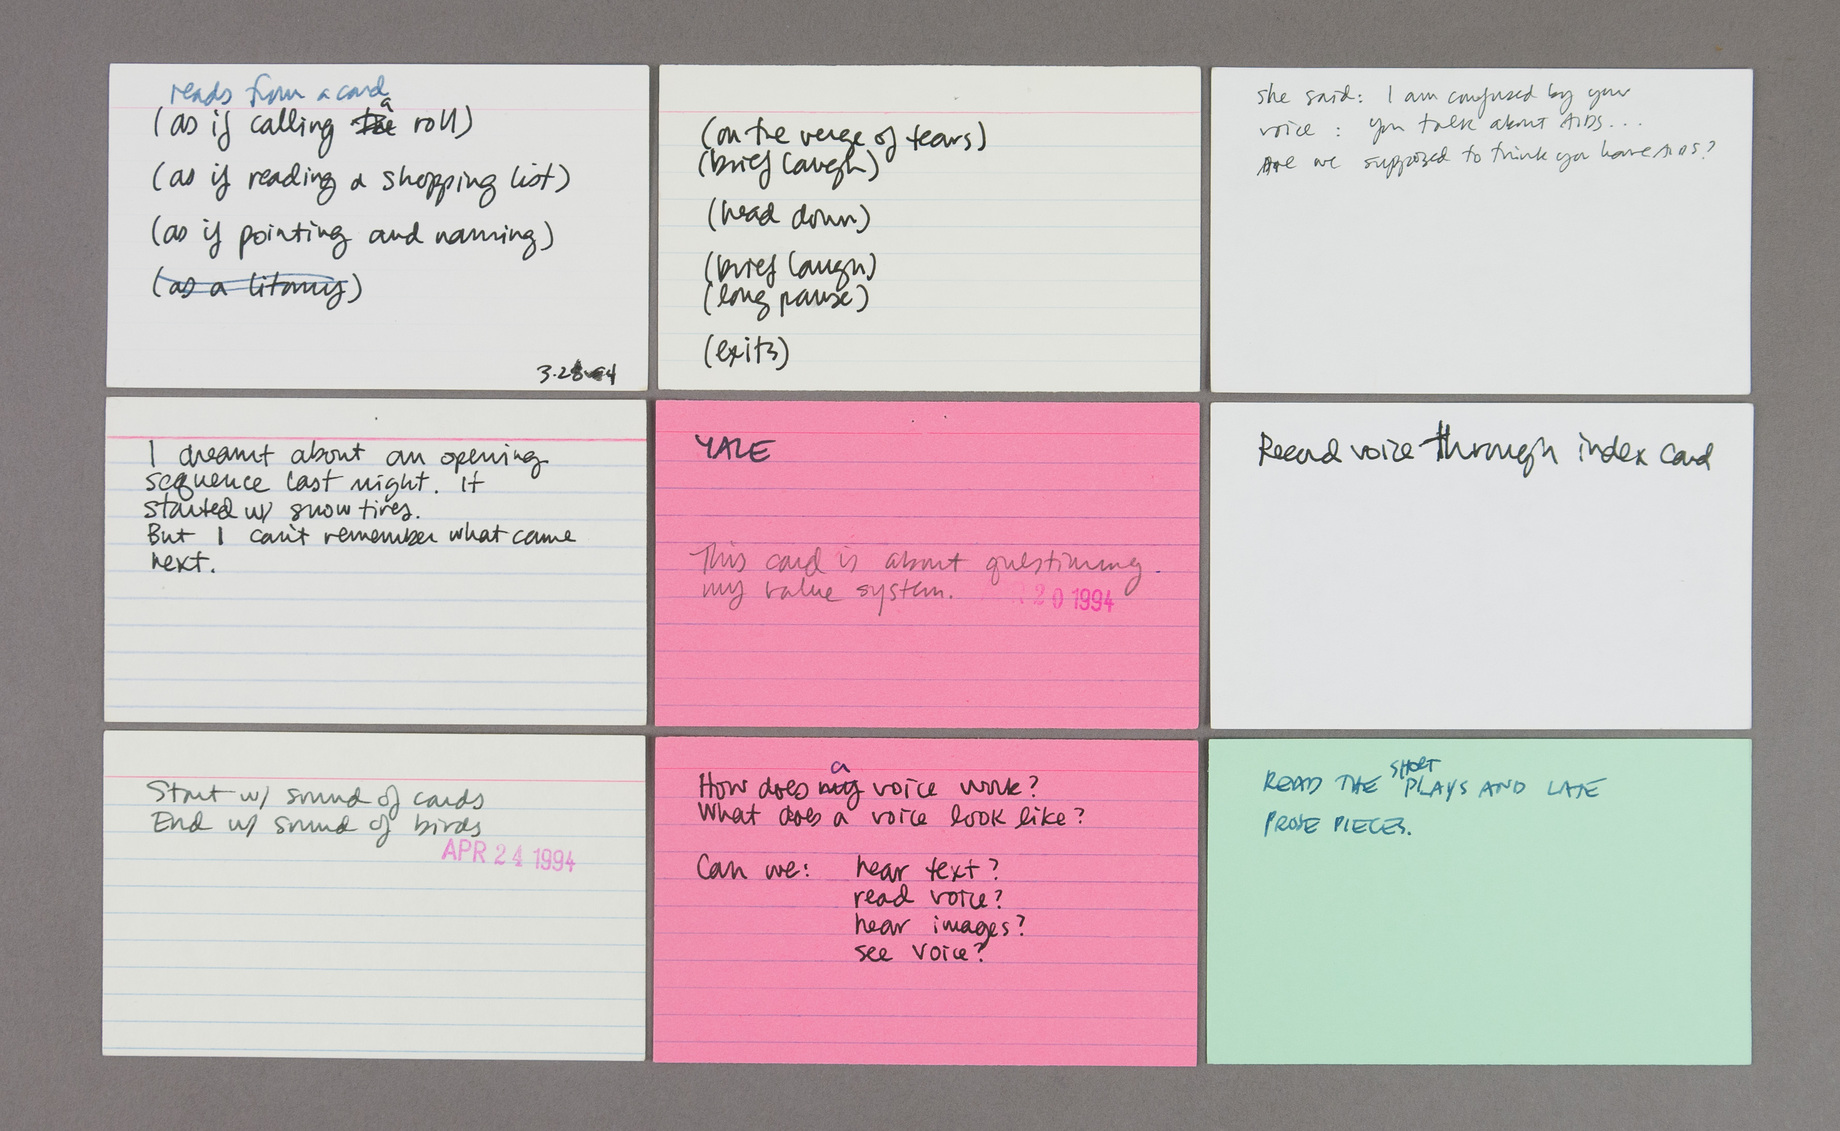 reads from a card
(as if calling a roll)
(as if reading a shopping list)
(as if pointing and naming)
(as a litany)
3.28.94
(on the verge of tears)
(brief laugh)
(head down)
(brief laugh)
(long pause)
(exits)
she said: I am confused by your
voice: you talk about AIDS...
Are we supposed to think you have AIDS?
I dreamt about an opening
sequence last night. It
started w/ snow tires.
But I can't remember what came
next.
YALE
This card is about questioning
my value system.
20 1994
Record voice through index card
Start w/ sound of cards
End w/ sound of birds
APR 24 1994
How does a voice work?
What does a voice look like?
Can we: hear text?
read voice?
hear images?
see voice?
READ THE SHORT PLAYS AND LATE
PROSE PIECES.